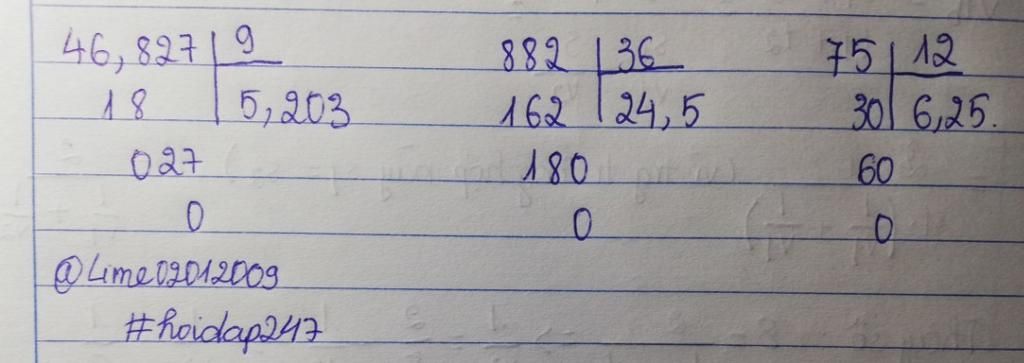 46,827 9 882 36 75 12
18 5,203 162 24,5 30 6,25.
027 180 60
0 0 0
@Lime02012009
#hoidap247